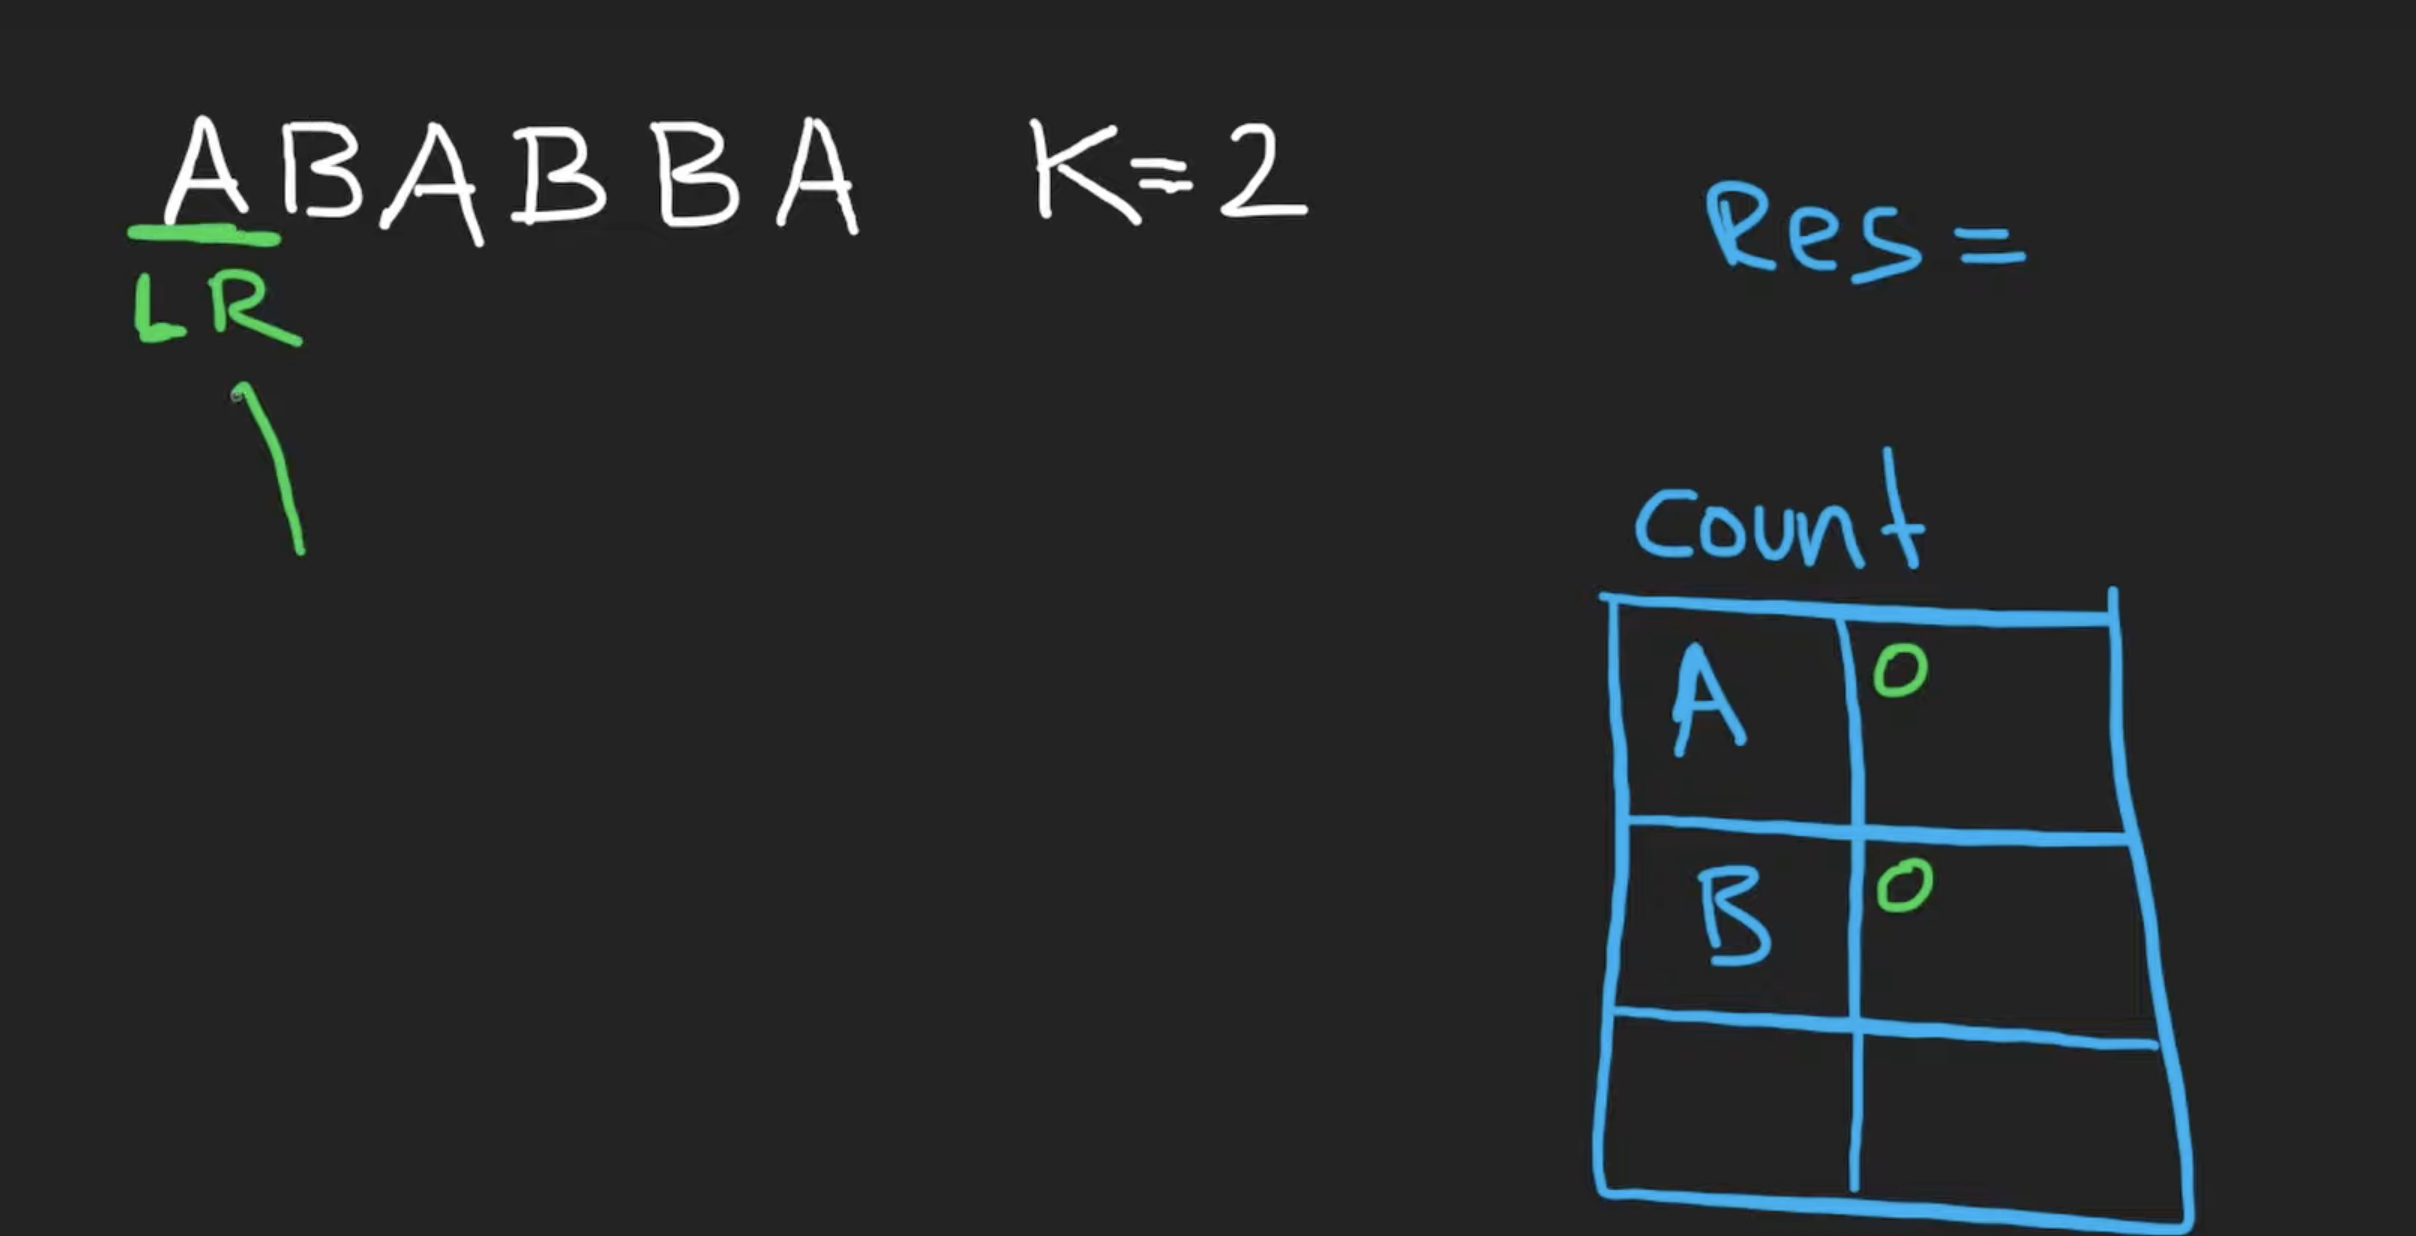 ABABBA K=2
Res=
LR
Count
A 0
B 0